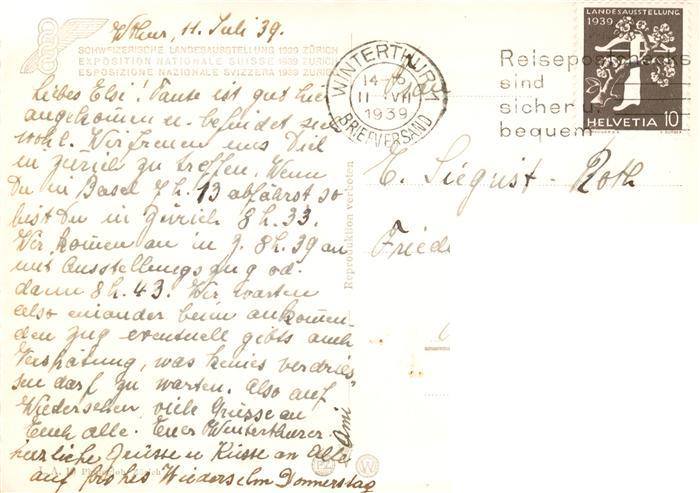 Wthur, 11. Juli 39.
SCHWEIZERISCHE LANDESAUSSTELLUNG 1939 ZÜRICH
EXPOSITION NATIONALE SUISSE 1939 ZURICH
ESPOSIZIONE NAZIONALE SVIZZERA 1939 ZURIGO
Liebes Elsi! Tante ist gut hier
angekommen u. befindet sich
wohl. Wir freuen uns Dich
in Zürich zu treffen. Wenn
Du in Basel 7 h. 13 abfährst so
bist Du in Zürich 8 h. 33.
Wir kommen an in Z. 8 h. 39 an
mit Ausstellungszug od.
dann 8 h. 43. Wir warten
also einander beim ankommen-
den Zug eventuell gibts auch
Verspätung, was keines verdries-
sen darf zu warten. Also auf
Wiedersehen, viele Grüsse an
Euch alle. Eure Winterthurer.
herzliche Grüsse u Küsse an Alle
auf frohes Wiedersehn Donnerstag
Ami
Reproduktion verboten
PZ
W
WINTERTHUR 1
14
11. VII
1939
BRIEFVERSAND
Reisepostchecks
sind
sicher u.
bequem
LANDESAUSSTELLUNG
1939
HELVETIA 10
E. Siegrist-Roth
Friede